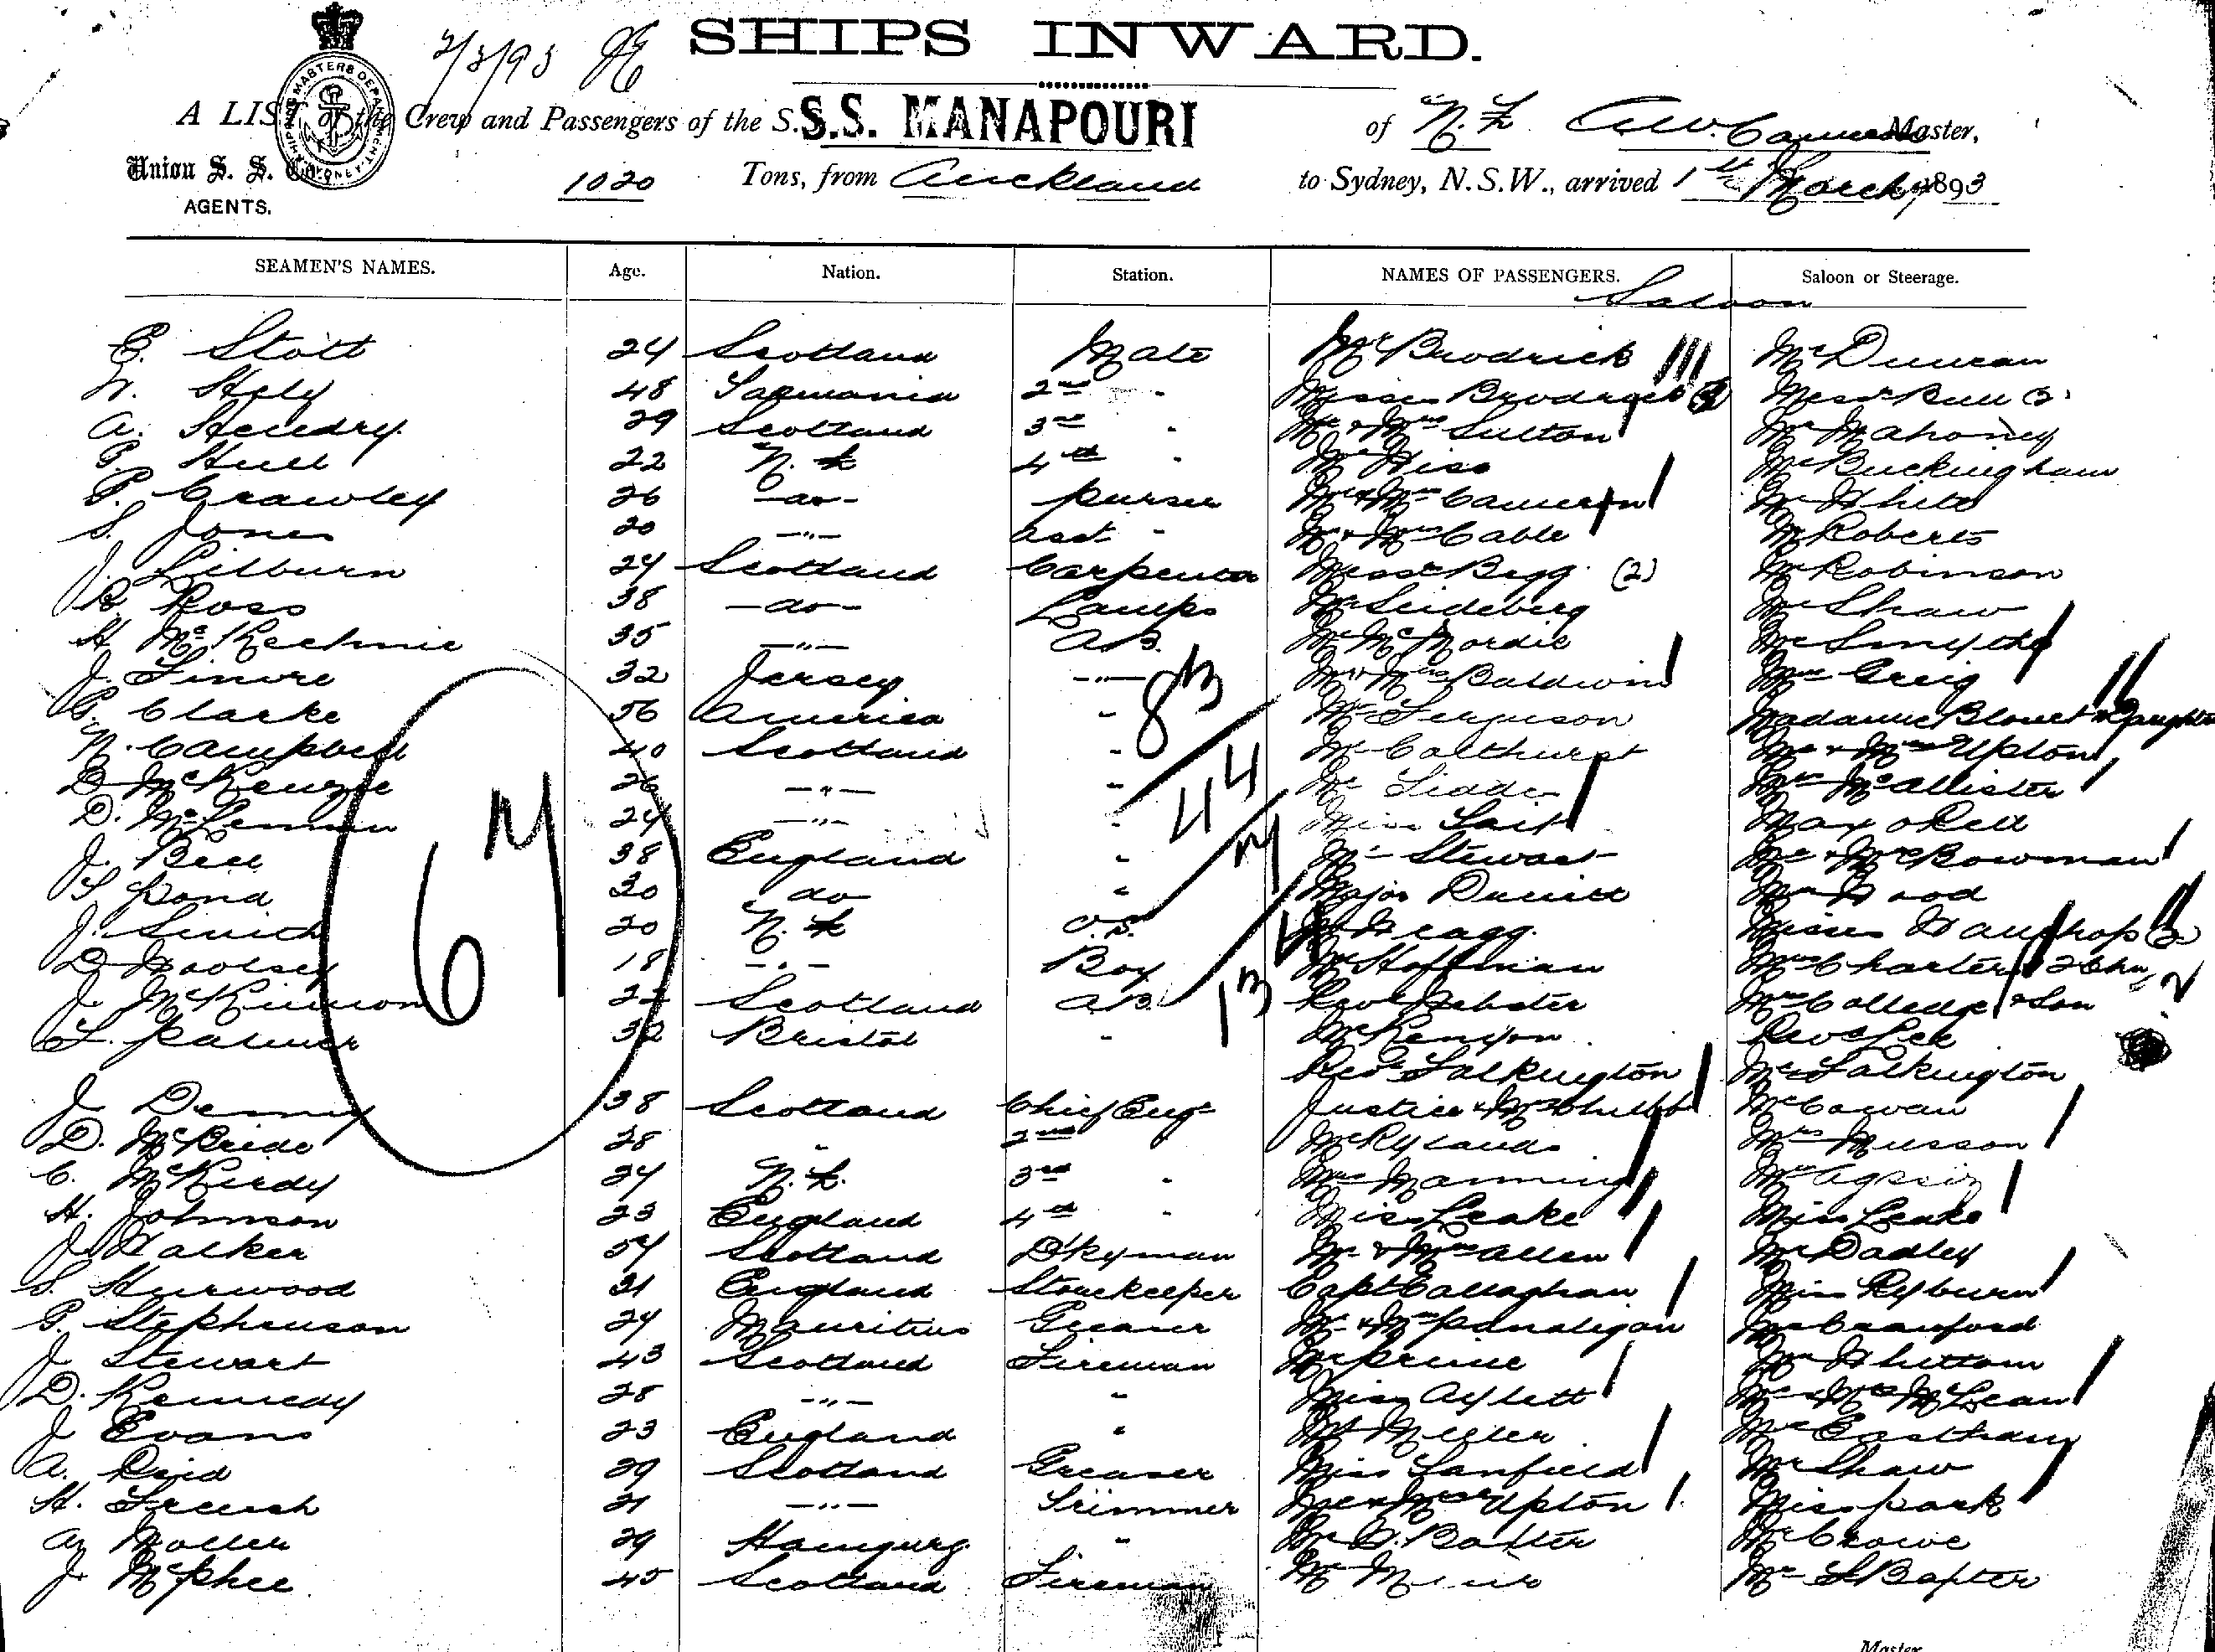 2/3/93
SHIPS INWARD.
A LIST of the Crew and Passengers of the S.S. S.S. MANAPOURI of N.Z. A.W. Cameron Master,
SHIPPING MASTERS DEPARTMENT SYDNEY
Union S. S. Co.
AGENTS.
1020 Tons, from Auckland to Sydney, N.S.W., arrived 1st March 1893
SEAMEN'S NAMES. Age. Nation. Station. NAMES OF PASSENGERS. Saloon or Steerage.
Saloon
E. Stott 24 Scotland Mate Mr Brodrick Mr Duncan
W. Hely 48 Tasmania 2nd " Misses Brodrick (3) Messrs Bull (2)
A. Hendry 29 Scotland 3rd " Mr & Mrs Sutton Mr Mahoney
Hull 22 N.Z. 4th " Mr Buckingham
P. Crawley 26 -do- purser Mr & Mrs Cameron Mr White
S. Jones 20 -"- asst " Mr & Mrs Cable Mr Roberts
J. Lilburn 24 Scotland Carpenter Messrs Begg (2) Mr Robinson
R. Ross 38 -do- Lamps Mr Seideberg Mr Shaw
H. McKechnie 35 -"- A.B. Mr McMordie Mr Smythe
J. 32 Jersey -"- Mr & Mrs Baldwin Mrs Greig
G. Clarke 56 America " Mr Ferguson Madame Blouet & Daughter
N. Campbell 40 Scotland " Mr Calthurst Mr & Mrs Upton
D. McKenzie 26 -"- " Mr Mrs McAllister
D. McLennan 24 -"- " Miss Max O'Rell
J. Bell 38 England " Mr Stewart Mr & Mrs Bowman
Pond 30 do " Major Mr Wood
J. Smith 20 N.Z. O.S. Mr Wragg Misses Wauchop (2)
D. Woolsey 18 -"- Boy Mr Hoffman Mrs Charters & 2 Chn
J. McKinnon 22 Scotland A.B. Revd Webster Mrs Colledge & Son
L. Palmer 32 Bristol " Mr Kenyon Revd Lee
Revd Talkington Mr Talkington
J. Denny 38 Scotland Chief Engr Justice & Mrs Mr Cowan
D. McBride 28 " 2nd Mr Rylands Mrs Musson
C. McKirdy 24 N.Z. 3rd " Mrs Manning Mrs
H. Johnson 23 England 4th " Miss Leake Miss Leake
J. Walker 54 Scotland D'kyman Mr & Mrs Allen Mr Dadley
S. Hurwood 31 England Storekeeper Capt Callaghan Miss Ryburn
G. Stephenson 24 Mauritius Greaser Mr & Mrs Mr Crawford
J. Stewart 43 Scotland Fireman Mr Prime Mr Whittom
D. Kennedy 28 -"- " Miss Aylett Mr & Mrs McLean
J. Evans 23 England " Mr Miller Mr Eastham
A. Reid 29 Scotland Greaser Miss Lanfield Mr Shaw
H. French 21 -"- Trimmer Mr & Mrs Upton Miss Park
A. Moller 29 Hamburg " Mr Baxter Mr Crowe
J. McPhee 45 Scotland Fireman Mr Mr S Baxter
67
83
44
13
Master